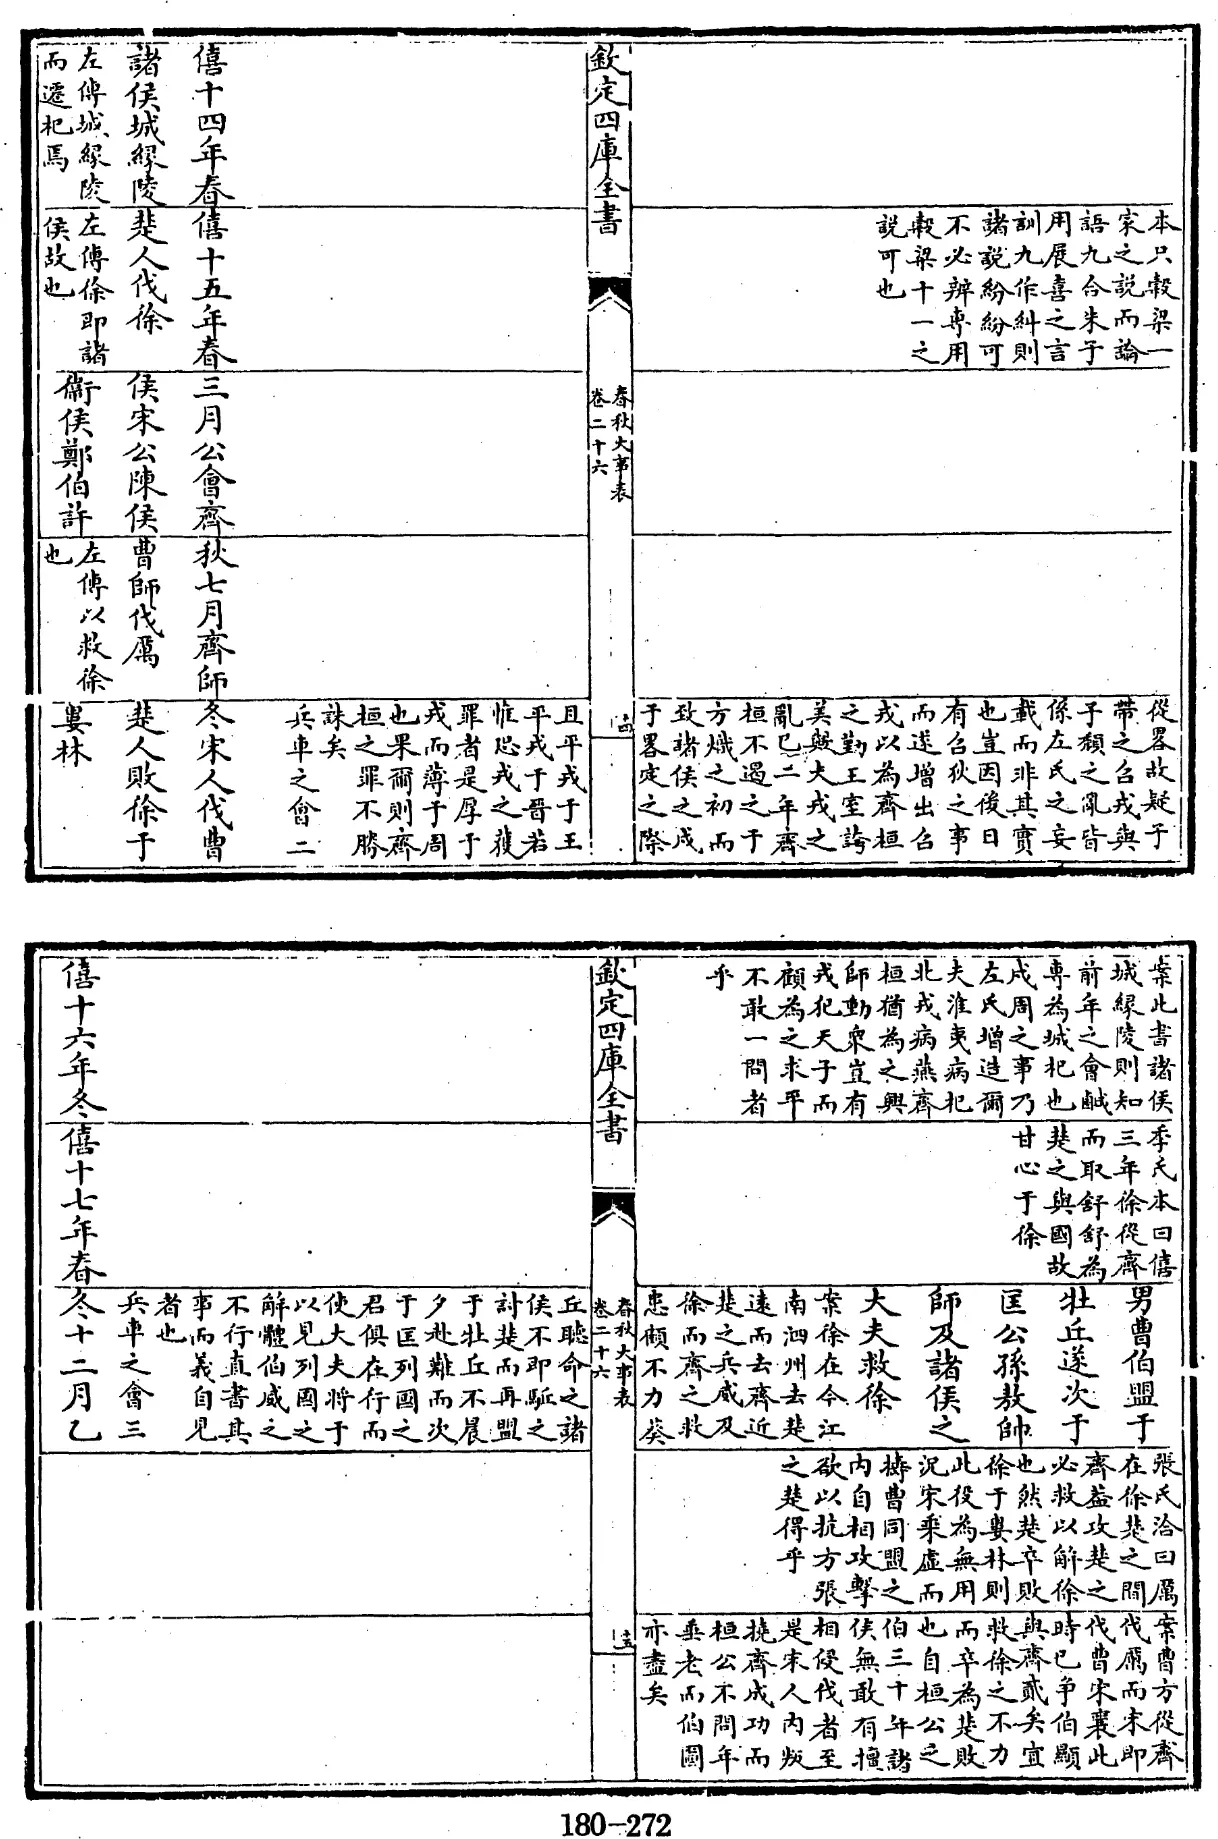 本只穀梁一
家之説而論
語九合朱子
用展喜之言
訓九作糾則
諸説紛紛可
不必辨專用
穀梁十一之
説可也
從畧故疑子
帶之召戎與
子頽之亂皆
係左氏之妄
載而非其實
也豈因後日
有召狄之事
而遂增出召
戎以為齊桓
之勤王室誇
美與犬戎之
亂已二年齊
桓不遏之于
方熾之初而
致諸侯之戍
于畧定之際
欽定四庫全書
春秋大事表
卷二十六
十四
且平戎于王
平戎于晉若
惟恐戎之獲
罪者是厚于
戎而薄于周
也果爾則齊
桓之罪不勝
誅矣
兵車之會二
僖十四年春
諸侯城緣陵
左傳城緣陵
而遷杞焉
僖十五年春
楚人伐徐
左傳徐即諸
侯故也
三月公會齊
侯宋公陳侯
衛侯鄭伯許
秋七月齊師
曹師伐厲
左傳以救徐
也
冬宋人伐曹
楚人敗徐于
婁林
案此書諸侯
城緣陵則知
前年之會鹹
專為城杞也
戍周之事乃
左氏增造爾
夫淮夷病杞
北戎病燕齊
桓猶為之興
師動衆豈有
戎犯天子而
顧為之求平
不敢一問者
乎
季氏本曰僖
三年徐從齊
而取舒舒為
楚之與國故
甘心于徐
男曹伯盟于
牡丘遂次于
匡公孫敖帥
師及諸侯之
大夫救徐
案徐在今江
南泗州去楚
遠而去齊近
楚之兵威及
徐而齊之救
患頗不力葵
張氏洽曰厲
在徐楚之間
齊益攻楚之
必救以解徐
也然楚卒敗
徐于婁林則
此役為無用
況宋乘虛而
擣曹同盟之
内自相攻擊
欲以抗方張
之楚得乎
案曹方從齊
伐厲而宋即
伐曹宋襄此
時已爭伯顯
與齊貳矣宜
救徐之不力
而卒為楚敗
也自桓公之
伯三十年諸
侯無敢有擅
相侵伐者至
是宋人内叛
撓齊成功而
桓公不問年
垂老而伯圖
亦盡矣
欽定四庫全書
春秋大事表
卷二十六
十五
丘聽命之諸
侯不即驅之
討楚而再盟
于牡丘不晨
夕赴難而次
于匡列國之
君俱在行而
使大夫將于
以見列國之
解體伯威之
不行直書其
事而義自見
者也
兵車之會三
僖十六年冬
僖十七年春
冬十二月乙
180-272